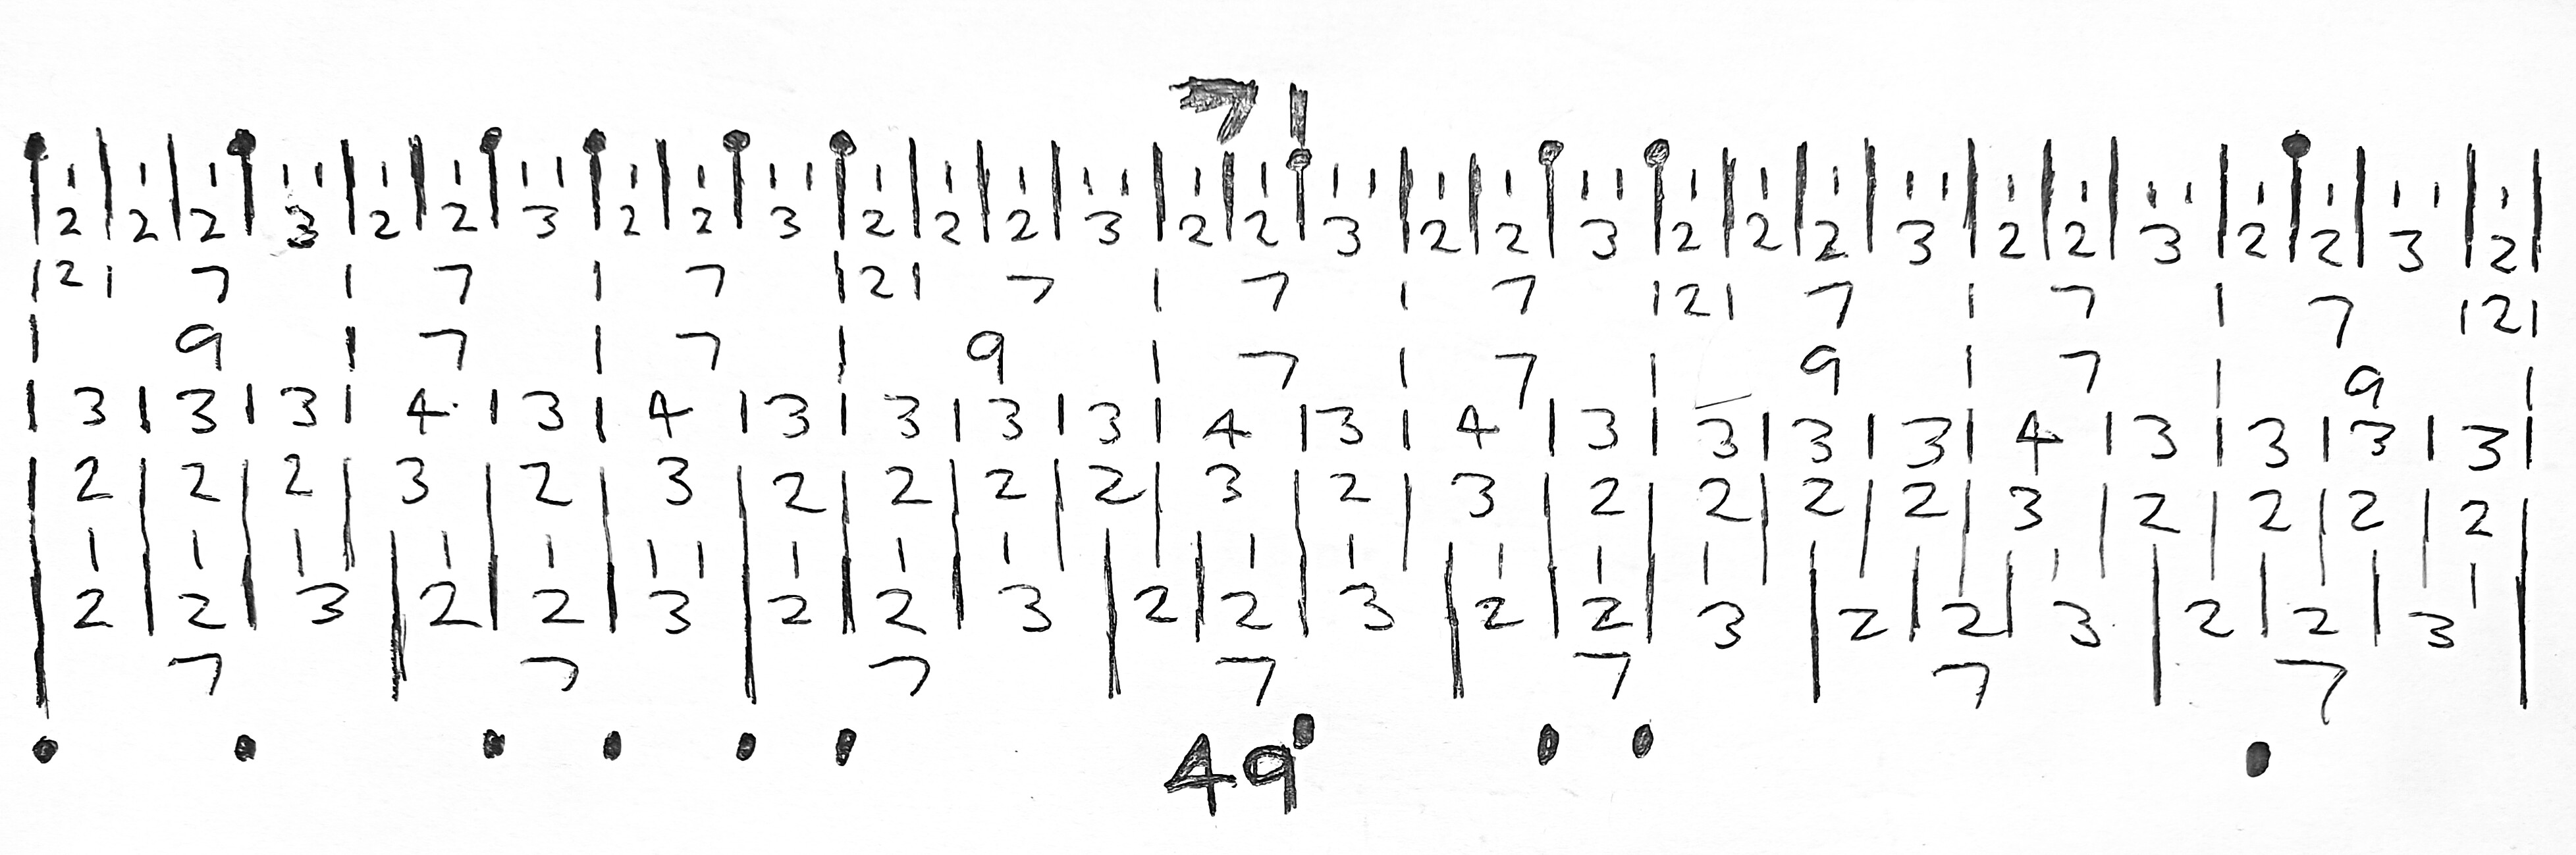 71
| 2 | 2 | 2 | 3 | 2 | 2 | 3 | 2 | 2 | 3 | 2 | 2 | 2 | 3 | 2 | 2 | 3 | 2 | 2 | 3 | 2 | 2 | 2 | 3 | 2 | 2 | 3 | 2 | 2 | 3 | 2 |
| 2 | 7 | 7 | 7 | 2 | 7 | 7 | 7 | 2 | 7 | 7 | 7 | 2 |
| 9 | 7 | 7 | 9 | 7 | 7 | 9 | 7 | 9 |
| 3 | 3 | 3 | 4 | 3 | 4 | 3 | 3 | 3 | 3 | 4 | 3 | 4 | 3 | 3 | 3 | 3 | 4 | 3 | 3 | 3 | 3 |
| 2 | 2 | 2 | 3 | 2 | 3 | 2 | 2 | 2 | 2 | 3 | 2 | 3 | 2 | 2 | 2 | 2 | 3 | 2 | 2 | 2 | 2 |
| 2 | 2 | 3 | 2 | 2 | 3 | 2 | 2 | 3 | 2 | 2 | 3 | 2 | 2 | 3 | 2 | 2 | 3 | 2 | 2 | 3 |
| 7 | 7 | 7 | 7 | 7 | 7 | 7 |
49